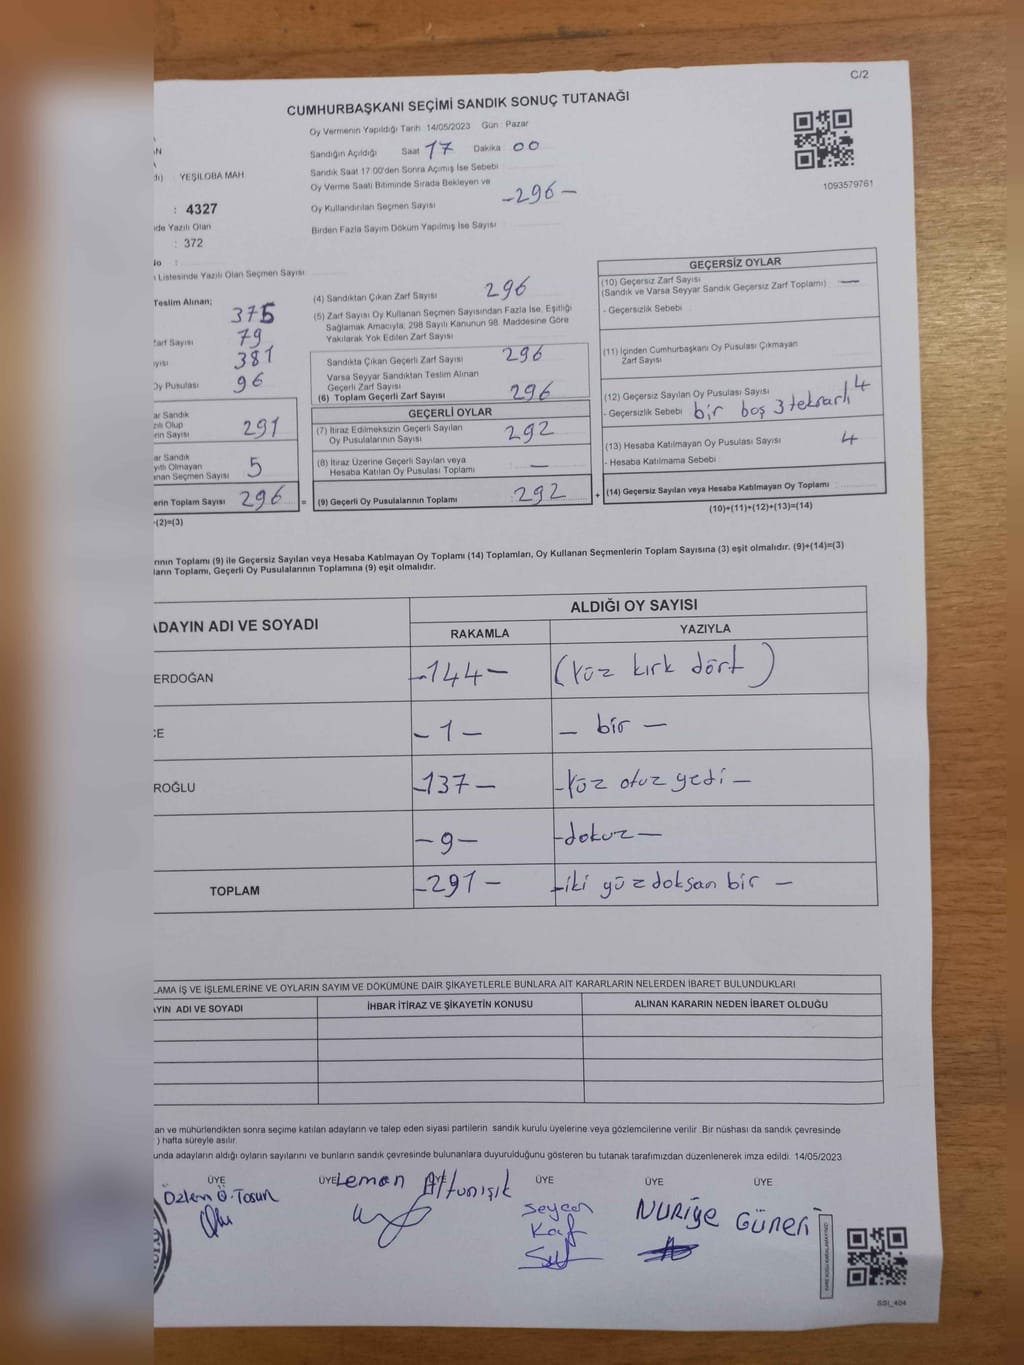 C/2
CUMHURBAŞKANI SEÇİMİ SANDIK SONUÇ TUTANAĞI
Oy Vermenin Yapıldığı Tarih 14/05/2023 Gün : Pazar
Sandığın Açıldığı Saat 17 Dakika 00
Sandık Saat 17:00'den Sonra Açılmış İse Sebebi
Oy Verme Saati Bitiminde Sırada Bekleyen ve
Oy Kullandırılan Seçmen Sayısı -296-
Birden Fazla Sayım Döküm Yapılmış İse Sayısı
1093579761
YEŞİLOBA MAH
: 4327
de Yazılı Olan
: 372
No :
Listesinde Yazılı Olan Seçmen Sayısı
Teslim Alınan;
375
Zarf Sayısı 79
yısı 381
Oy Pusulası 96
ar Sandık
zılı Olup
erin Sayısı 291
ar Sandık
yıtlı Olmayan
nan Seçmen Sayısı 5
erin Toplam Sayısı 296 =
(2)=(3)
(4) Sandıktan Çıkan Zarf Sayısı 296
(5) Zarf Sayısı Oy Kullanan Seçmen Sayısından Fazla İse, Eşitliği
Sağlamak Amacıyla, 298 Sayılı Kanunun 98. Maddesine Göre
Yakılarak Yok Edilen Zarf Sayısı
Sandıkta Çıkan Geçerli Zarf Sayısı 296
Varsa Seyyar Sandıktan Teslim Alınan
Geçerli Zarf Sayısı
(6) Toplam Geçerli Zarf Sayısı 296
GEÇERLİ OYLAR
(7) İtiraz Edilmeksizin Geçerli Sayılan
Oy Pusulalarının Sayısı 292
(8) İtiraz Üzerine Geçerli Sayılan veya
Hesaba Katılan Oy Pusulası Toplamı —
(9) Geçerli Oy Pusulalarının Toplamı 292 +
GEÇERSİZ OYLAR
(10) Geçersiz Zarf Sayısı
(Sandık ve Varsa Seyyar Sandık Geçersiz Zarf Toplamı) —
- Geçersizlik Sebebi
(11) İçinden Cumhurbaşkanı Oy Pusulası Çıkmayan
Zarf Sayısı
(12) Geçersiz Sayılan Oy Pusulası Sayısı 4
- Geçersizlik Sebebi bir boş 3 tekrarlı
(13) Hesaba Katılmayan Oy Pusulası Sayısı 4
- Hesaba Katılmama Sebebi
(14) Geçersiz Sayılan veya Hesaba Katılmayan Oy Toplamı
(10)+(11)+(12)+(13)=(14)
rının Toplamı (9) ile Geçersiz Sayılan veya Hesaba Katılmayan Oy Toplamı (14) Toplamları, Oy Kullanan Seçmenlerin Toplam Sayısına (3) eşit olmalıdır. (9)+(14)=(3)
ların Toplamı, Geçerli Oy Pusulalarının Toplamına (9) eşit olmalıdır.
ADAYIN ADI VE SOYADI ALDIĞI OY SAYISI
RAKAMLA YAZIYLA
ERDOĞAN -144- (Yüz kırk dört)
CE -1- - bir -
ROĞLU -137- -Yüz otuz yedi -
-9- -dokuz-
TOPLAM -291- -iki yüz doksan bir -
LAMA İŞ VE İŞLEMLERİNE VE OYLARIN SAYIM VE DÖKÜMÜNE DAİR ŞİKAYETLERLE BUNLARA AİT KARARLARIN NELERDEN İBARET BULUNDUKLARI
AYIN ADI VE SOYADI İHBAR İTİRAZ VE ŞİKAYETİN KONUSU ALINAN KARARIN NEDEN İBARET OLDUĞU
an ve mühürlendikten sonra seçime katılan adayların ve talep eden siyasi partilerin sandık kurulu üyelerine veya gözlemcilerine verilir .Bir nüshası da sandık çevresinde
) hafta süreyle asılır.
unda adayların aldığı oyların sayılarını ve bunların sandık çevresinde bulunanlara duyurulduğunu gösteren bu tutanak tarafımızdan düzenlenerek imza edildi. 14/05/2023
ÜYE ÜYE ÜYE ÜYE ÜYE ÜYE
Özlem Ö. Tosun Leman Altunışık Seycan Kaf NURİYE GÜNERİ
SGI_404